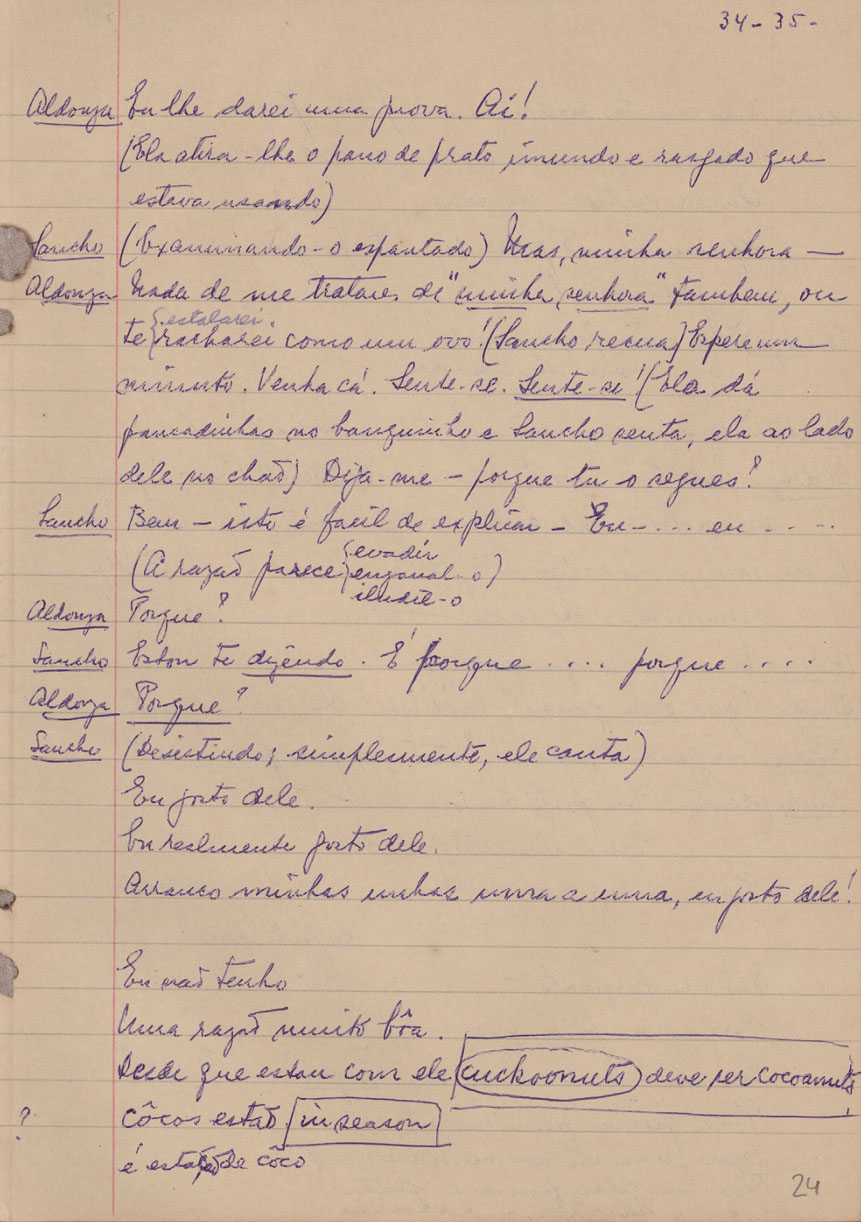 34-35-
Aldonza Eu lhe darei uma prova. Aí!
(Ela atira-lhe o pano de prato imundo e rasgado que
estava usando)
Sancho (Examinando-o espantado) Mas, minha senhora —
Aldonza Nada de me tratares de "minha senhora" tambem, ou
estalarei
te racharei como um ovo! (Sancho recua) Espere um
minuto. Venha cá. Sente-se. Sente-se! (Ela dá
pancadinhas no banquinho e Sancho senta, ela ao lado
dele no chão) Diga-me - porque tu o segues?
Sancho Bem - isto é facil de explicar - Eu- ... eu ....
evadir
(A razão parece enganal-o)
iludil-o
Aldonza Porque?
Sancho Estou te dizendo. É porque .... porque ....
Aldonza Porque?
Sancho (Desistindo; simplesmente, ele canta)
Eu gosto dele.
Eu realmente gosto dele.
Arranco minhas unhas uma a uma, eu gosto dele!
Eu não tenho
Uma razão muito bôa.
Desde que estou com ele cuckoonuts deve ser cocoanuts
? côcos estão in season
é estação de côco
24